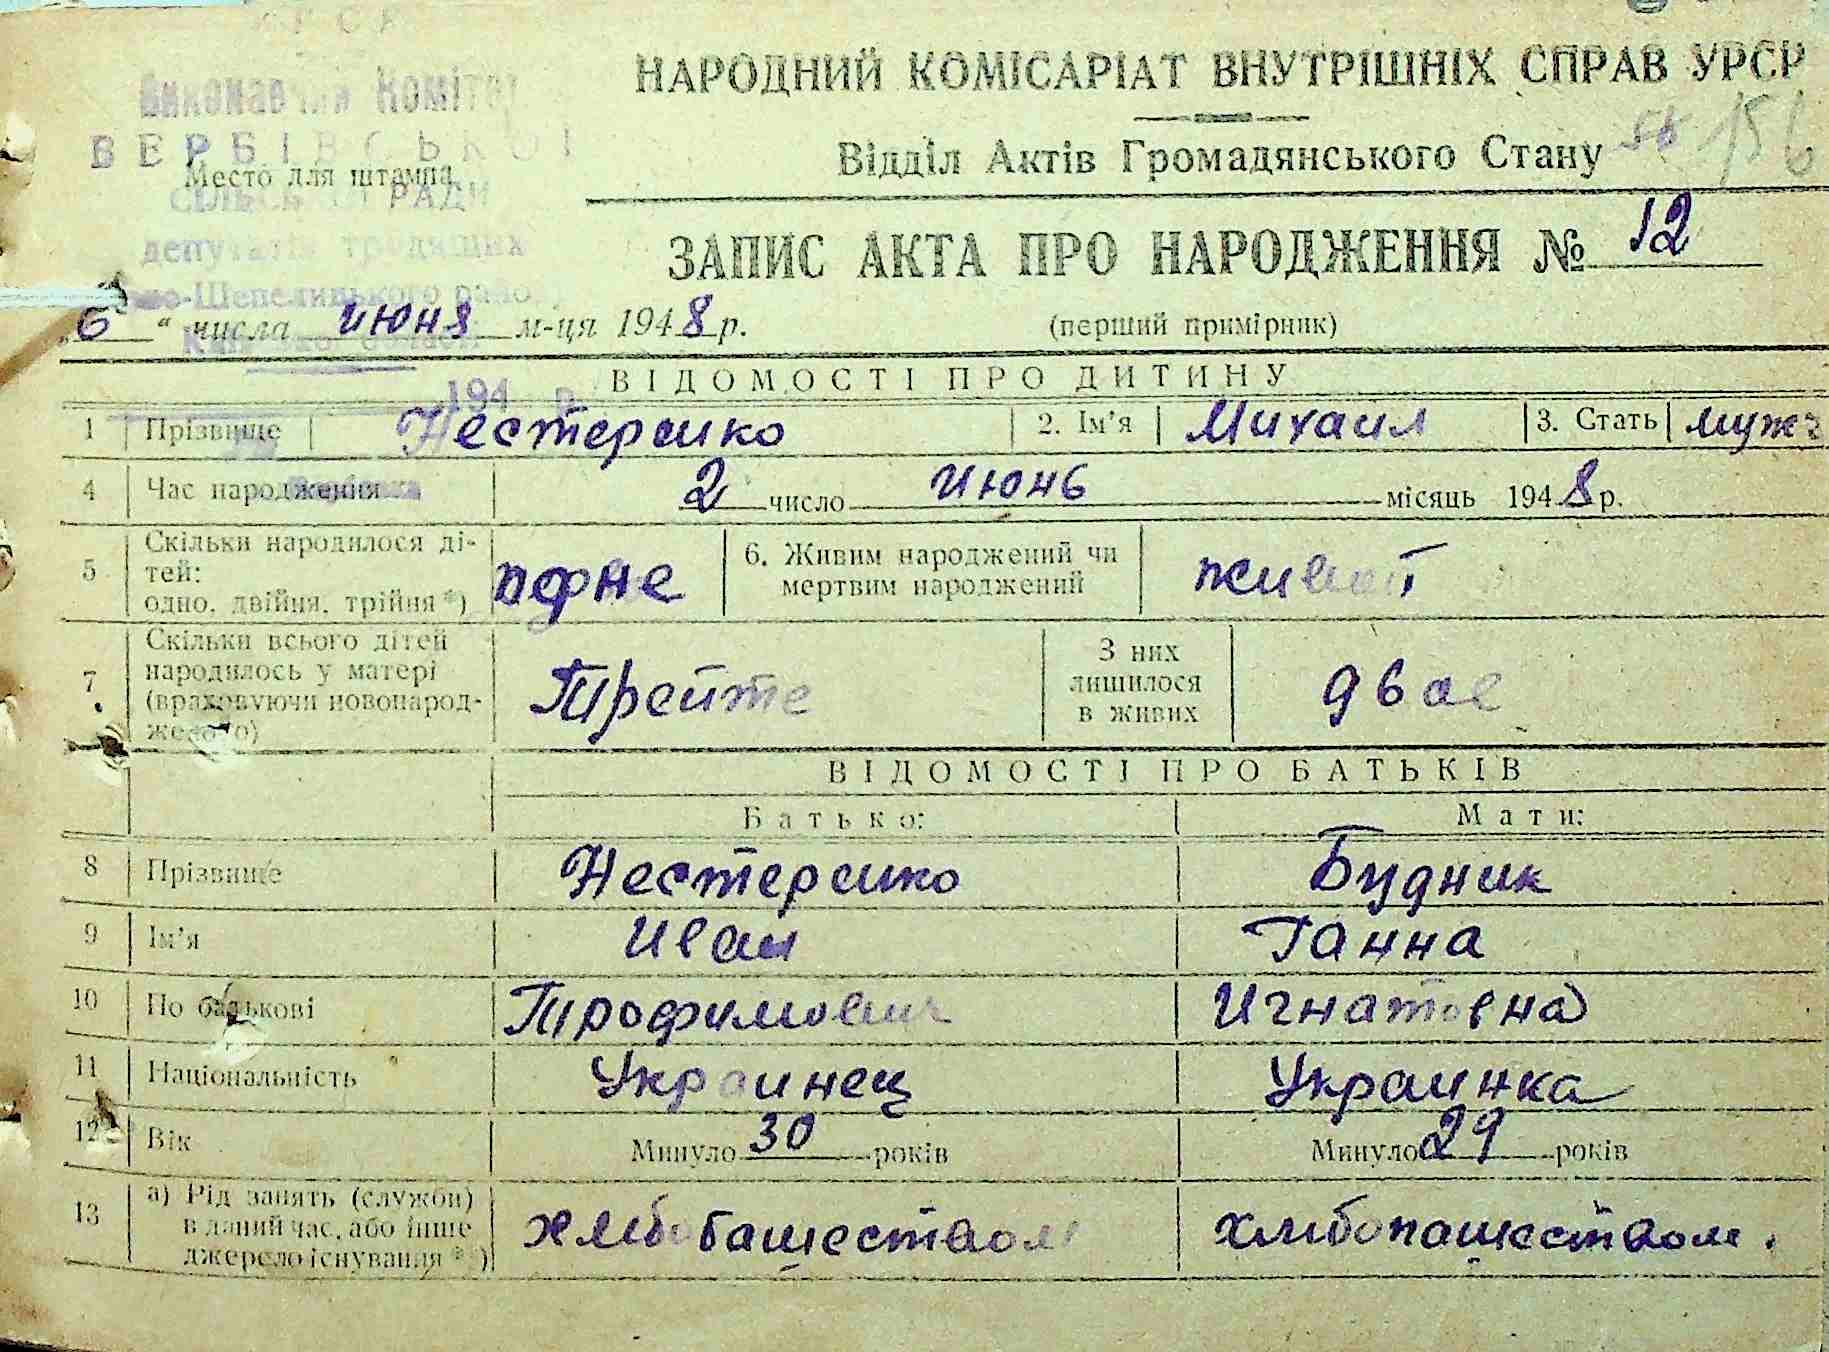 УРСР
Виконавчий Комітет
НАРОДНИЙ КОМІСАРІАТ ВНУТРІШНІХ СПРАВ УРСР
ВЕРБІВСЬКОЇ
Место для штампа
Відділ Актів Громадянського Стану 56 156
СІЛЬСЬКОЇ РАДИ
депутатів трудящих
ЗАПИС АКТА ПРО НАРОДЖЕННЯ № 12
-Шепелицького району
„6" числа июня м-ця 1948 р. (перший примірник)
194 р.
ВІДОМОСТІ ПРО ДИТИНУ
1 Прізвище Нестеренко 2. Ім'я Михаил 3. Стать муж
4 Час народження 2 число июнь місяць 1948 р.
5 Скільки народилося ді-
тей:
одно, двійня, трійня*) одне 6. Живим народжений чи
мертвим народжений живой
7 Скільки всього дітей
народилось у матері
(враховуючи новонарод-
женого) Трейте З них
лишилося
в живих двое
ВІДОМОСТІ ПРО БАТЬКІВ
Батько: Мати:
8 Прізвище Нестеренко Будник
9 Ім'я Иван Ганна
10 По батькові Трофимович Игнатовна
11 Національність Украинец Украинка
12 Вік Минуло 30 років Минуло 29 років
13 а) Рід занять (служби)
в даний час, або інше
джерело існування **) хлебобашеством хлибопашеством.